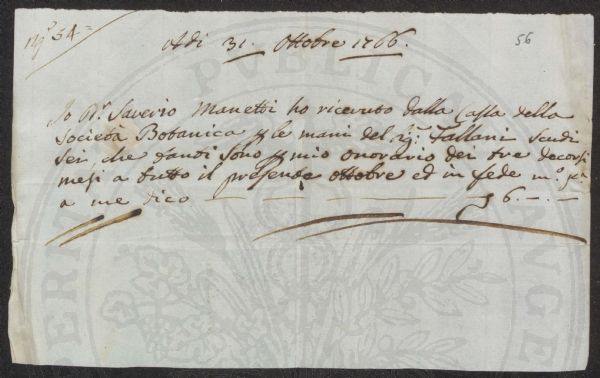 N.º 34=
56
Adi 31. Ottobre 1766.
Io D.r Saverio Manetti ho ricevuto dalla Cassa della
Società Botanica p le mani del Sig.r Tallani Scudi
Sei, che tanti sono p mio onorario dei tre decorsi
mesi a tutto il presente Ottobre ed in fede m.o p.a
a me dico — — — — 6. —. —
PUBLIC